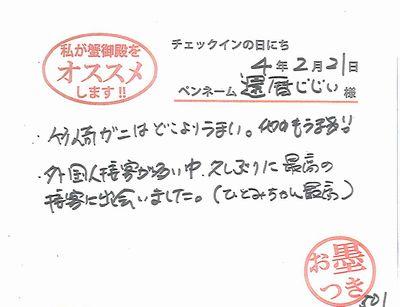 私が蟹御殿を
オススメ
します!!
チェックインの日にち
4年2月21日
ペンネーム 還暦じじい 様
・竹崎ガニはどこよりうまい。他のもうまい!!
・外国人接客が多い中、久しぶりに最高の
接客に出会いました。(ひとみちゃん最高)
お墨
つき
501